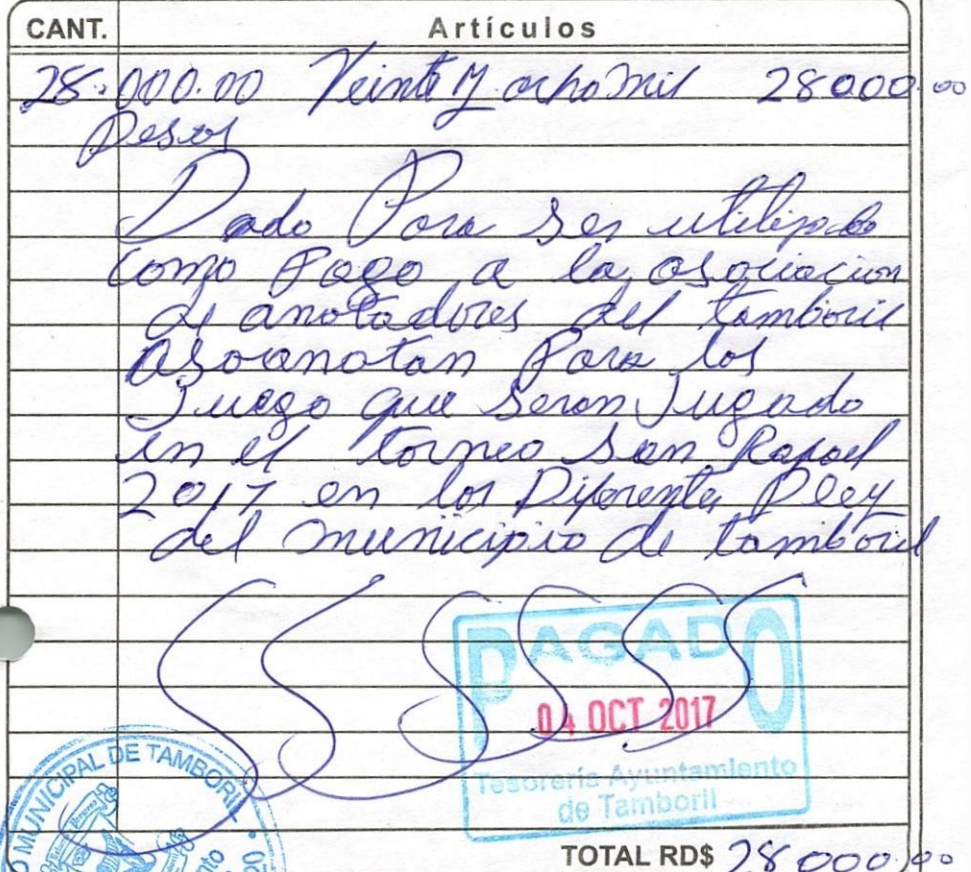 CANT. Artículos
28.000.00 Veinte y ocho mil 28000.00
Pesos
Dado Para ser utilizado
como Pago a la asociacion
de anotadores del tamboril
Asoanotan Para los
Juego que seran Jugado
en el torneo San Rafael
2017 en los Diferentes Pley
del municipio de tamboril
PAGADO
04 OCT 2017
Tesorería Ayuntamiento
de Tamboril
MUNICIPAL DE TAMBORIL
TOTAL RD$ 28000.00